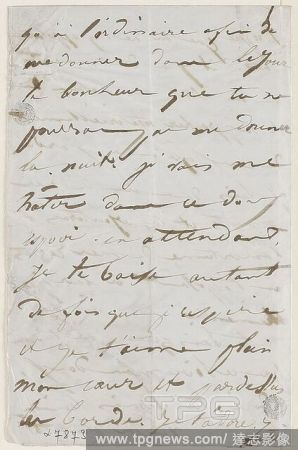 qu'à l'ordinaire afin de
me donner dans le jour
le bonheur que tu ne
pourras pas me donner
la nuit. je vais me
hâter dans ce doux
espoir. en attendant,
je te baise autant
de fois que je respire
et je t'aime plein
mon cœur et par dessus
les bords. je t'adore
TPG
www.tpgnews.com / 達志影像